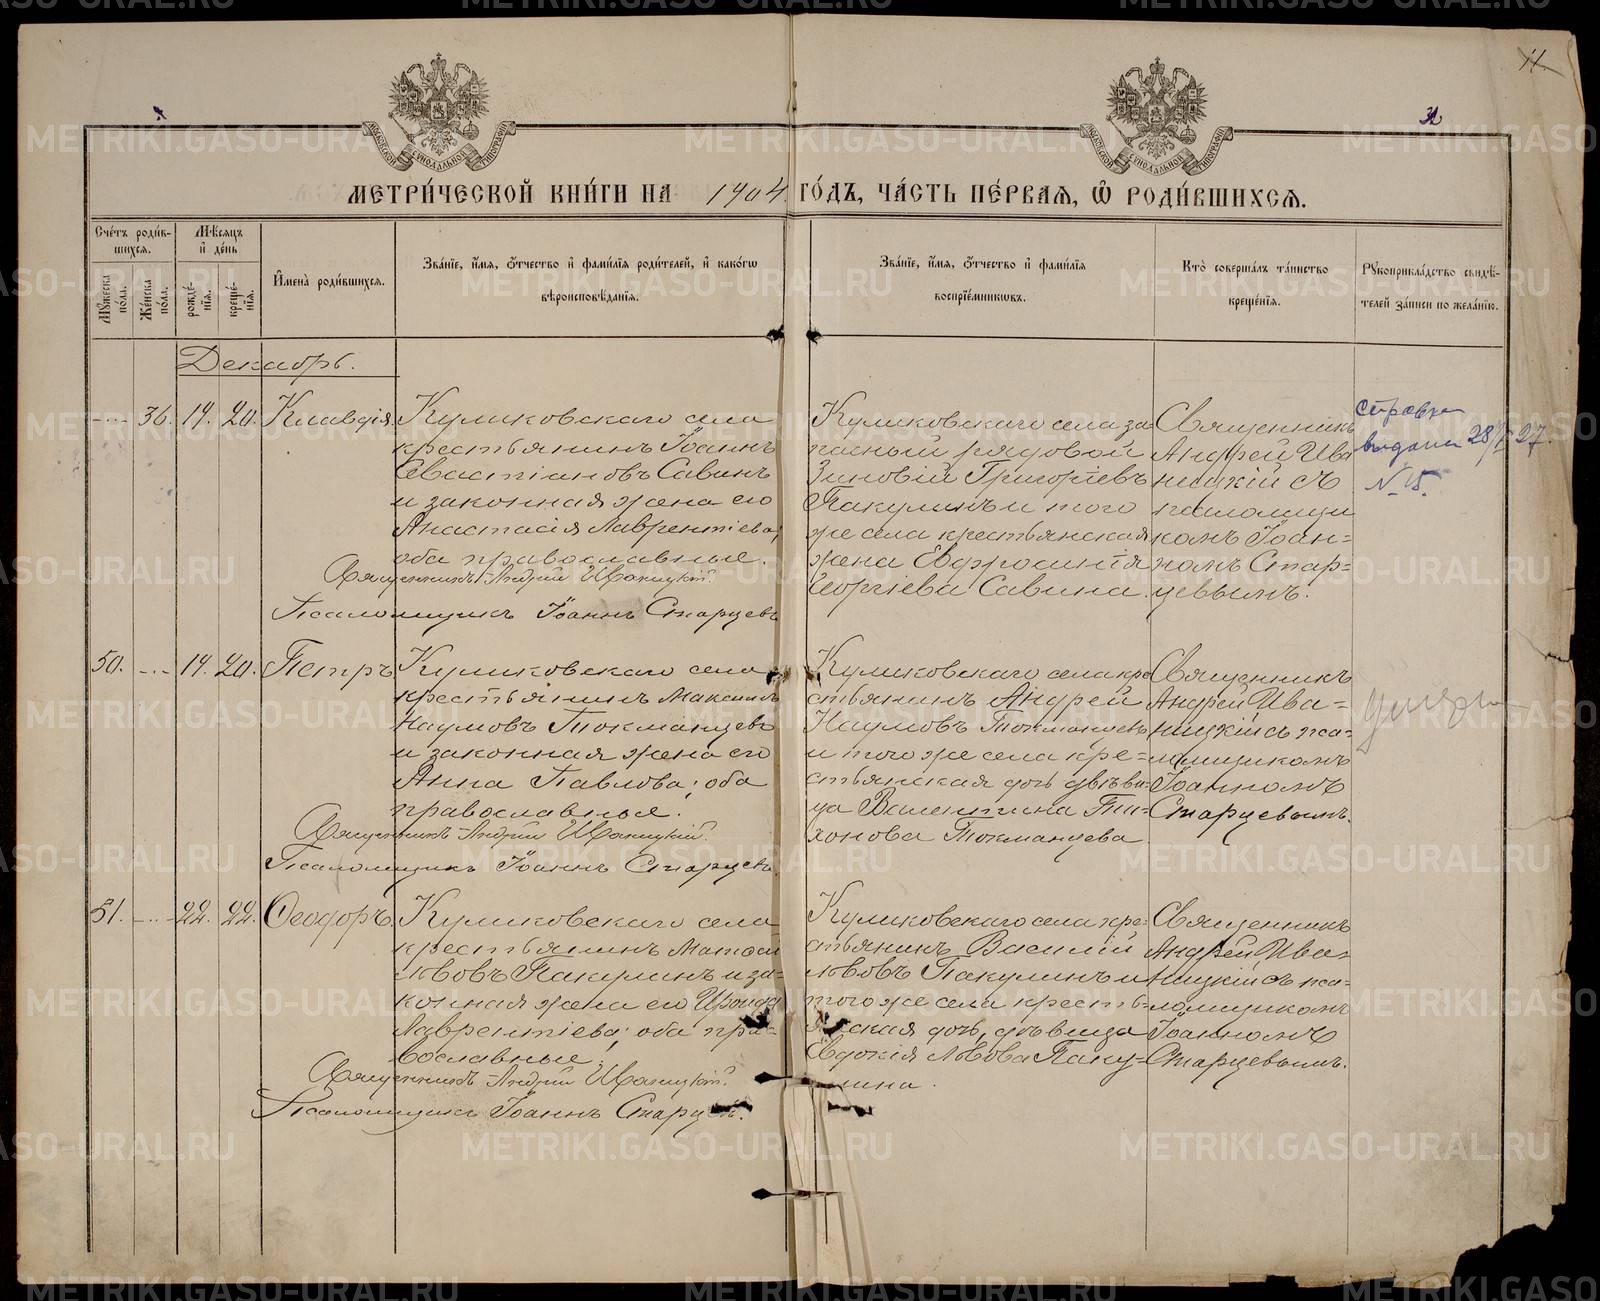 МЕТРИ́ЧЕСКОЙ КНИ́ГИ НА 1904 ГО́ДЪ, ЧА́СТЬ ПЕ́РВАЯ, Ѿ РОДИ́ВШИХСЯ.
Сче́тъ роди́в-
шихся.
Мѣсяцъ
и҆ де́нь
Мꙋжеска по́ла.
Же́нска по́ла.
рожде́-
нїя.
креще́-
нїя.
И҆мена̀ роди́вшихся.
Зва́нїе, и҆́мя, ѻ҆́тчество и҆ фами́лїя роди́телей, и҆ како́гѡ
вѣроисповѣ́данїя.
Зва́нїе, и҆́мя, ѻ҆́тчество и҆ фами́лїя
воспрїе́мникѡвъ.
Кто̀ соверша́лъ та́инство
креще́нїя.
Рꙋкоприкла́дство свидѣ́-
телей за́писи по жела́нїю.
Декабрь.
36. 14. 20. Клавдія
Куликовскаго села
крестьянинъ Іоаннъ
Севастіановъ Савинъ
и законная жена его
Анастасія Лаврентіева;
оба православные.
Священникъ Андрей Иваницкій.
Псаломщикъ Іоаннъ Старцевъ
Куликовскаго села за-
пасный рядовой
Зиновій Григоріевъ
Пакулинъ и того
же села крестьянская
жена Евфросинія
Георгіева Савина.
Священникъ
Андрей Ива
ницкій съ
псаломщи
комъ Іоан=
номъ Стар=
цевымъ.
справка
выдана 28/ 27.
N 15.
50. 14. 20. Петръ
Куликовскаго села
крестьянинъ Максимъ
Наумовъ Токманцевъ
и законная жена его
Анна Павлова; оба
православные.
Священникъ Андрей Иваницкій.
Псаломщикъ Іоаннъ Старцевъ
Куликовскаго села кре
стьянинъ Андрей
Наумовъ Токманцевъ
и того же села кре=
стьянская дочь дѣви=
ца Валентина Ти=
хонова Токманцева
Священникъ
Андрей Ива=
ницкій съ пса=
ломщикомъ
Іоанномъ
Старцевымъ.
51. 22. 22. Ѳеодоръ
Куликовскаго села
крестьянинъ Матѳей
Львовъ Пакулинъ и за-
конная жена его Ираида
Лаврентіева; оба пра-
вославные.
Священникъ Андрей Иваницкій.
Псаломщикъ Іоаннъ Старцевъ.
Куликовскаго села кре=
стьянинъ Василій
Львовъ Пакулинъ и
того же села кресть-
янская дочь, дѣвица
Евдокія Львова Паку-
лина.
Священникъ
Андрей Ива=
ницкій съ пса=
ломщикомъ
Іоанномъ
Старцевымъ.
METRIKI.GASO-URAL.RU